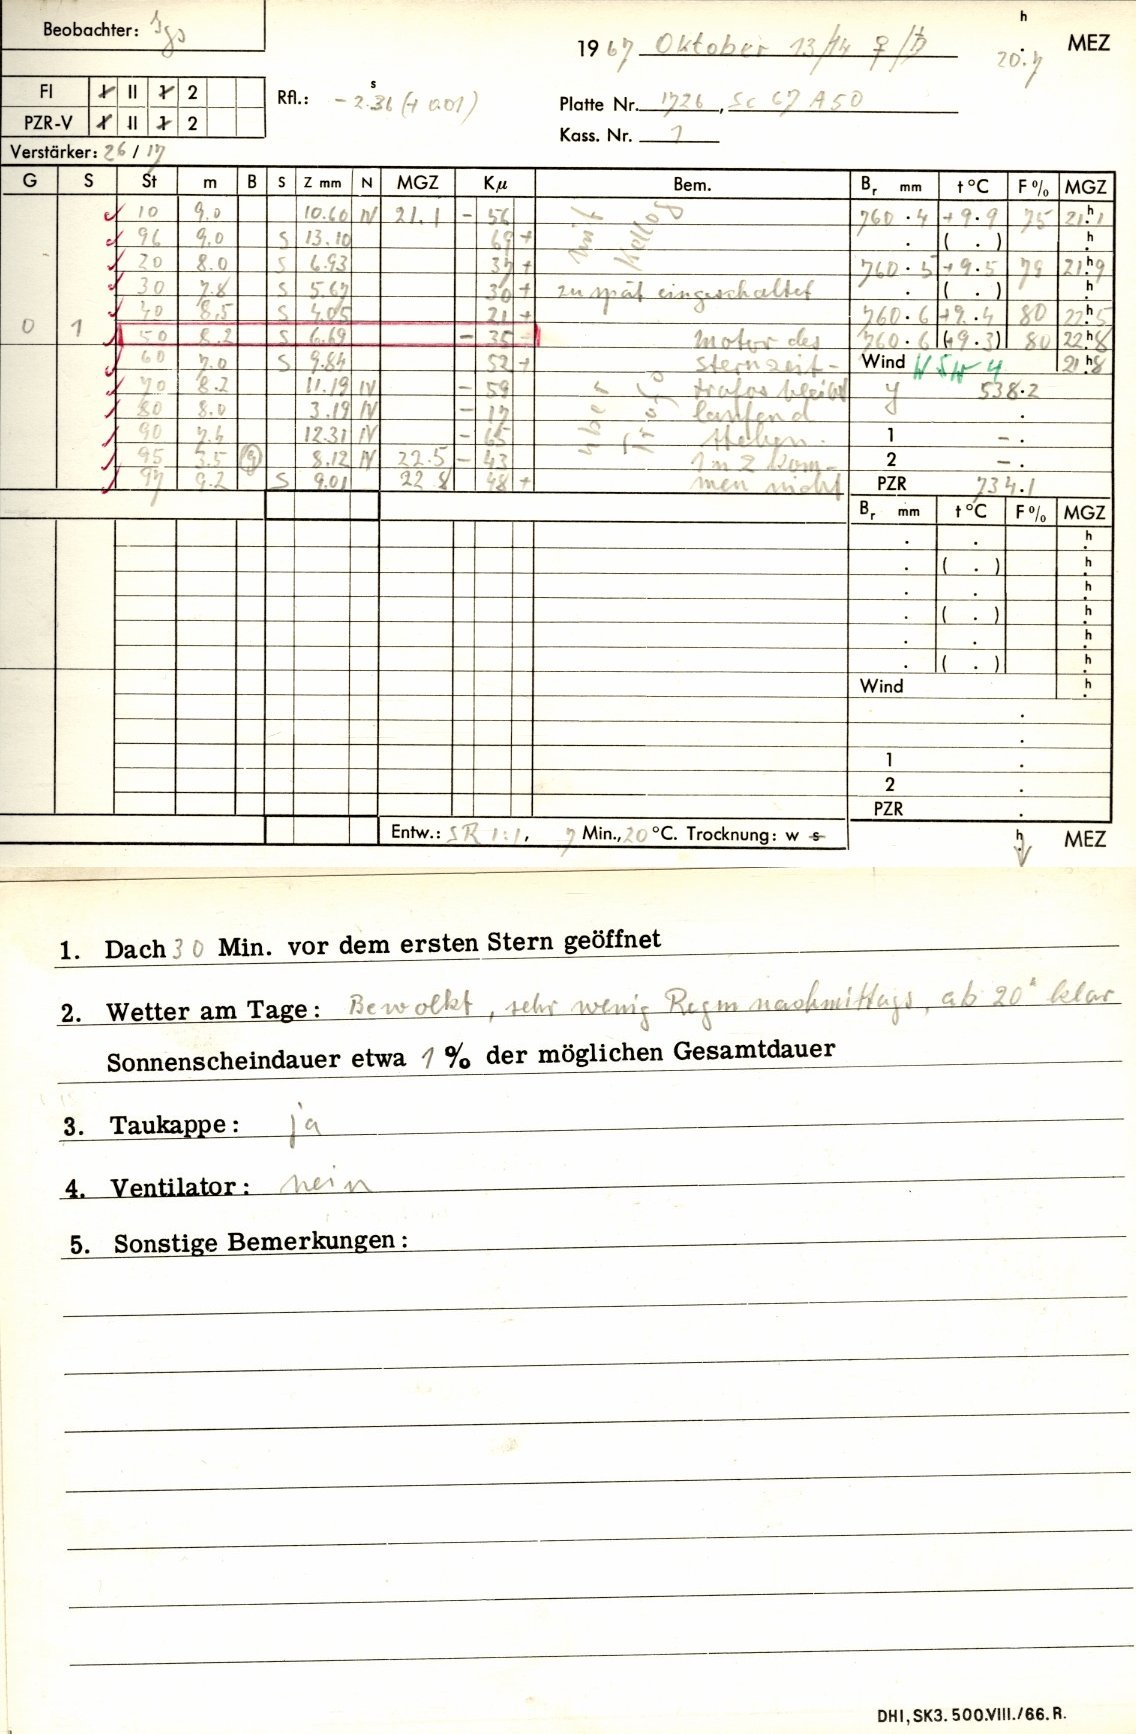 Beobachter: Jgs
1967 Oktober 13/14 ♀/♄
h
20.7 MEZ
FI I II 1 2
PZR-V I II 1 2
Rfl.: -2.36 (+0.01)
s
Platte Nr. 1726, Sc 67 A50
Kass. Nr. 1
Verstärker: 26 / 17
G S St m B S Z mm N MGZ Kµ Bem. Br mm t °C F % MGZ
10 9.0 10.60 N 21.1 - 56 760.4 +9.9 75 21.1
96 9.0 S 13.10 69 + . ( . ) h
20 8.0 S 6.93 37 + 760.5 +9.5 79 21.9
30 7.8 S 5.67 30 + zu spät eingeschaltet . ( . ) h
40 8.5 S 4.05 21 + 760.6 +9.4 80 22.5
0 1 50 8.2 S 6.69 - 35 Motor des 760.6 (+9.3) 80 22.8
60 7.0 S 9.84 52 + Sternzeit- Wind WSW 4 21.8
70 8.2 11.19 N - 59 trafos bleibt y 538.2
80 8.0 3.19 N - 17 laufend
90 7.4 12.31 N - 65 stehen. 1 - .
95 3.5 8.12 N 22.5 - 43 1 m Z kom- 2 - .
97 9.2 S 9.01 22.8 48 + men nicht PZR 734.1
mit
über
Trafo
Br mm t °C F % MGZ
. . h
. ( . ) h
. . h
. ( . ) h
. . h
. ( . ) h
Wind h
.
.
1 .
2 .
PZR .
Entw.: SR 1:1, 7 Min., 20 °C. Trocknung: w s
h MEZ
1. Dach 30 Min. vor dem ersten Stern geöffnet
2. Wetter am Tage: Bewölkt, sehr wenig Regen nachmittags, ab 20h klar
Sonnenscheindauer etwa 1 % der möglichen Gesamtdauer
3. Taukappe: ja
4. Ventilator: nein
5. Sonstige Bemerkungen:
DHI, SK3. 500.VIII./66. R.